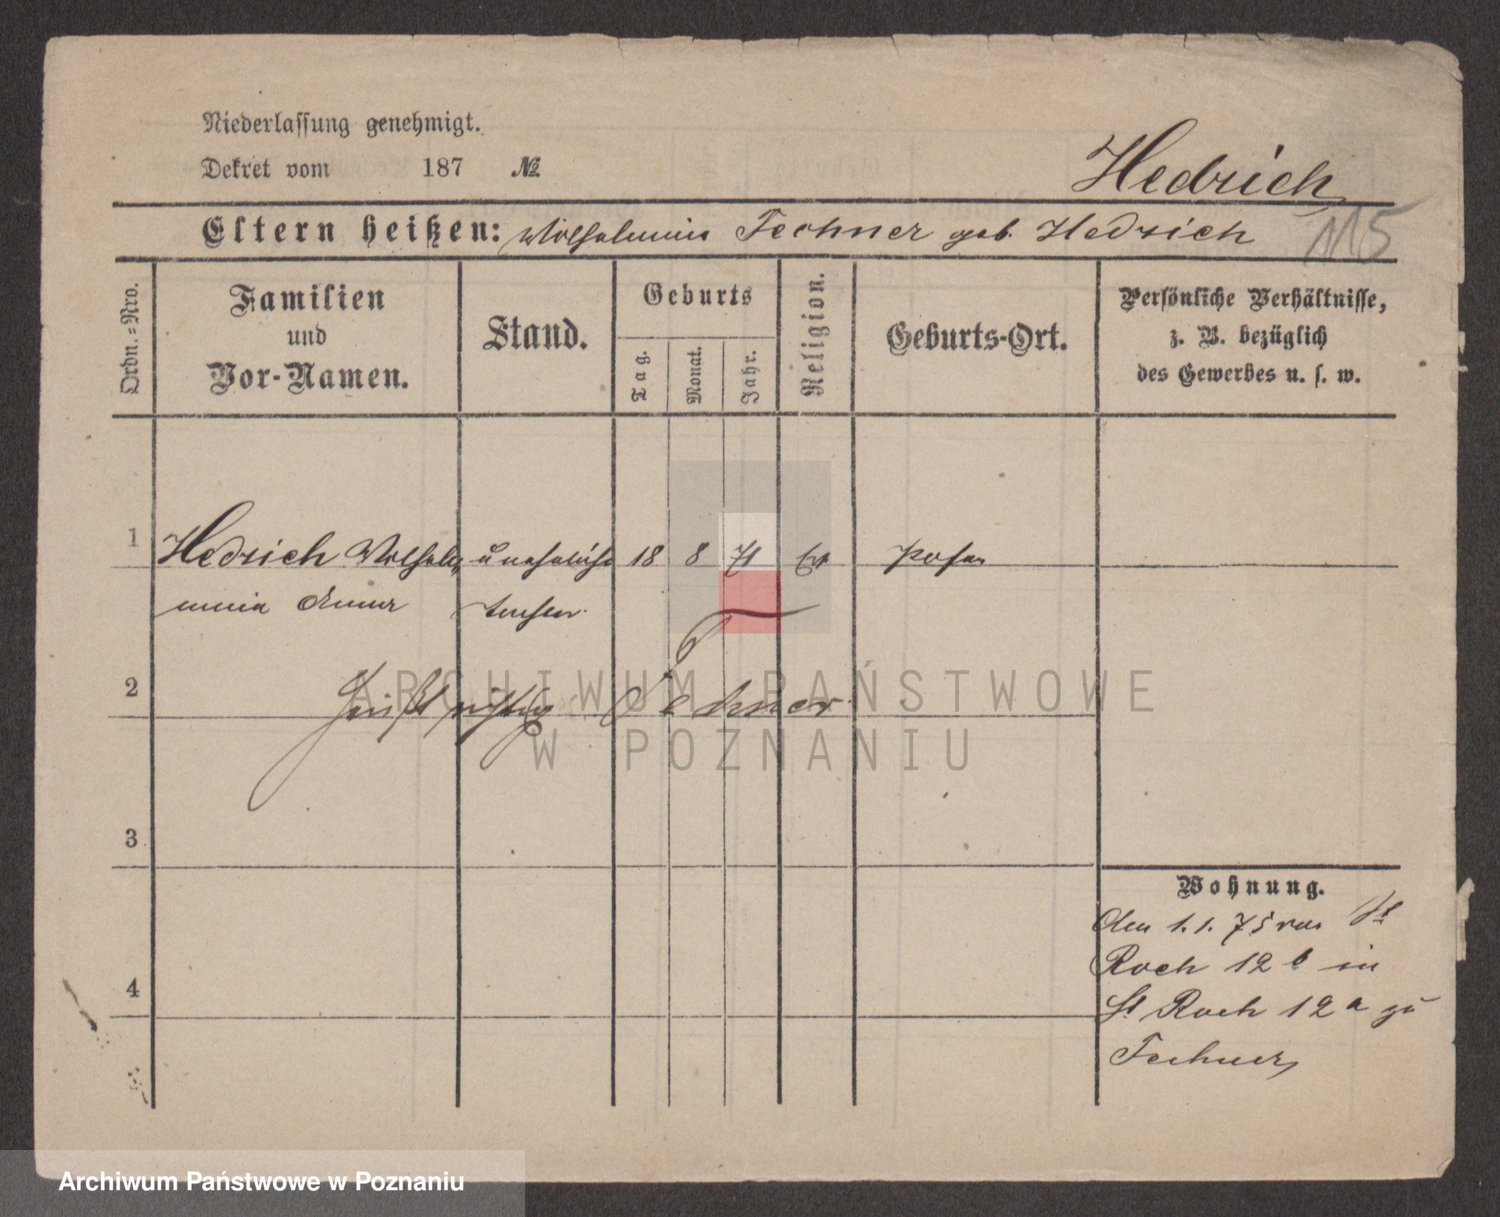 Niederlassung genehmigt.
Dekret vom 187 №
Hedrich
115
Eltern heißen: Wilhelmine Fechner geb. Hedrich
Ordn.-Nro.
Familien
und
Vor-Namen.
Stand.
Geburts
Tag.
Monat.
Jahr.
Religion.
Geburts-Ort.
Persönliche Verhältnisse,
z. B. bezüglich
des Gewerbes u. s. w.
1 Hedrich Wilhel uneheliche 18 8 71 Ev Posen
mine Anna Tochter
2 heißt richtig Fechner
3
4
Wohnung.
den 1.1.75 von St
Roch 12 b in
St Roch 12 a zu
Fechner
ARCHIWUM PAŃSTWOWE
W POZNANIU
Archiwum Państwowe w Poznaniu